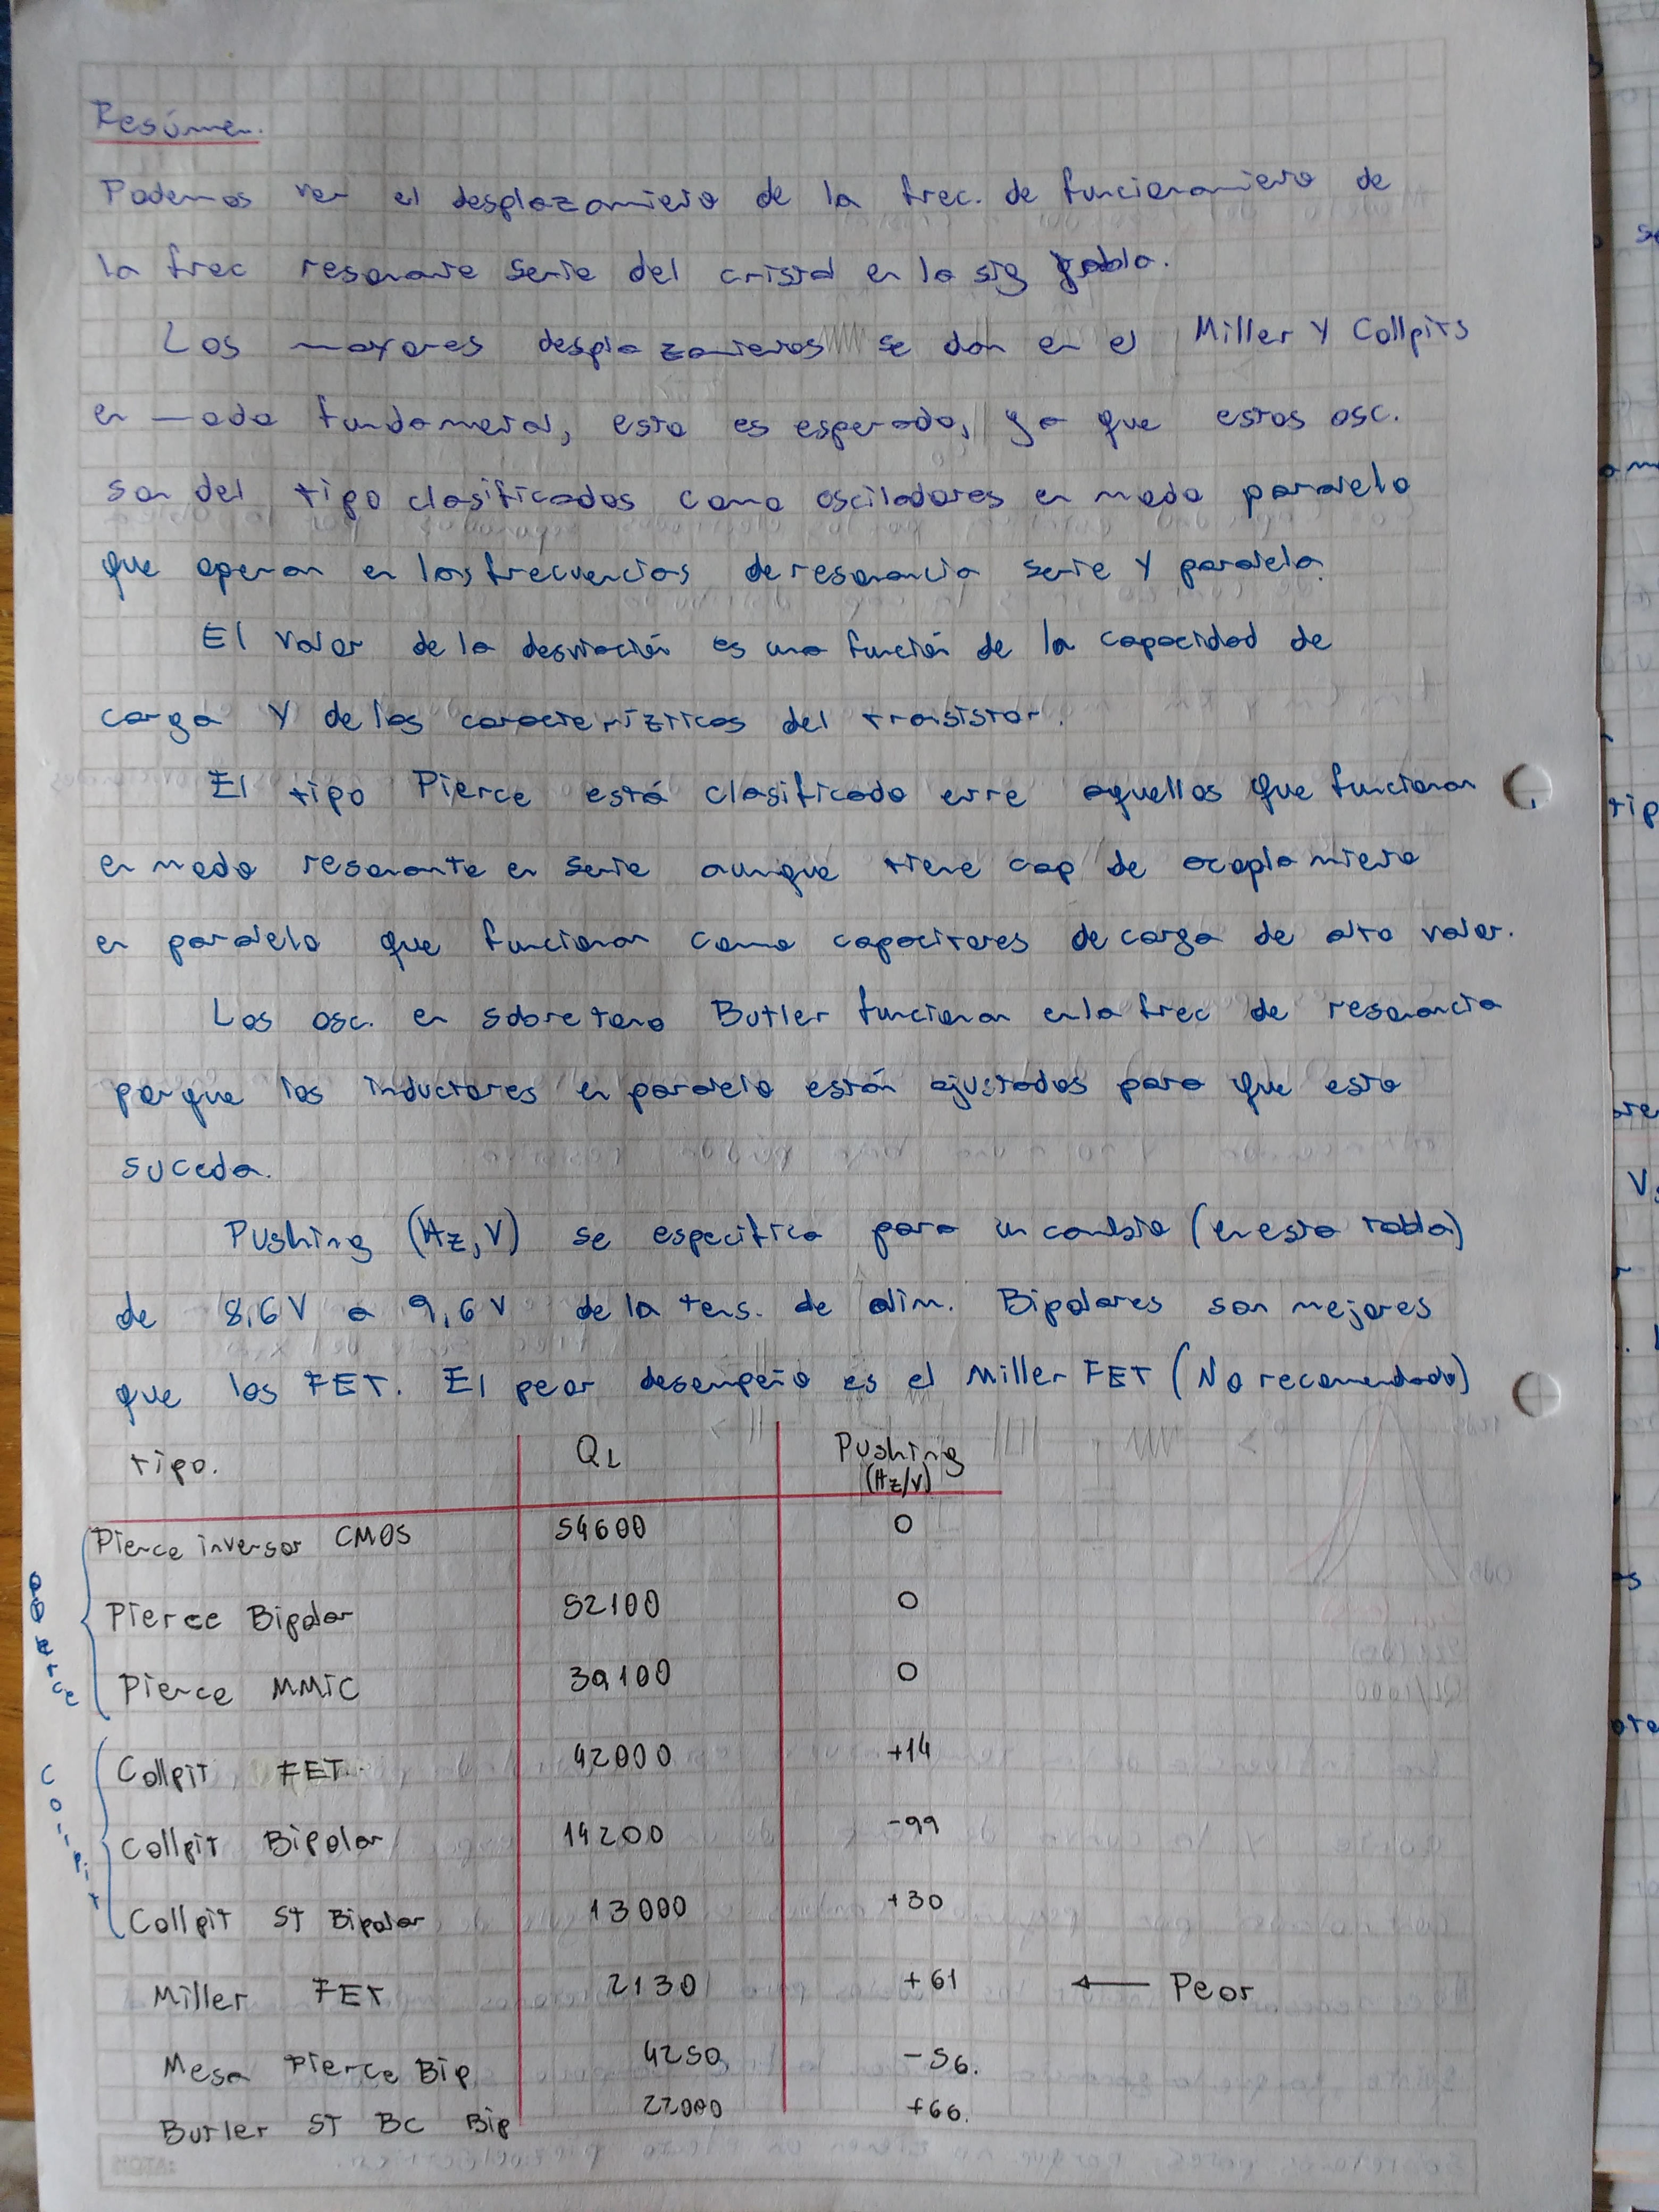 Resúmen.
Podemos ver el desplazamiento de la frec. de funcionamiento de
la frec resonante serie del cristal en la sig tabla.
Los mayores desplazamientos se dan en el Miller y Collpits
en modo fundamental, esto es esperado, ya que estos osc.
son del tipo clasificados como osciladores en modo paralelo
que operan en las frecuencias de resonancia serie y paralela.
El valor de la desviación es una función de la capacidad de
carga y de las caracterízticas del transistor.
El tipo Pierce está clasificado entre aquellos que funcionan
en modo resonante en serie aunque tiene cap de acoplamiento
en paralelo que funcionan como capacitores de carga de alto valor.
Los osc. en sobretono Butler funcionan en la frec de resonancia
porque los inductores en paralelo están ajustados para que esto
suceda.
Pushing (Hz, V) se especifica para un cambio (en esta tabla)
de 8,6 V a 9,6 V de la tens. de alim. Bipolares son mejores
que los FET. El peor desempeño es el Miller FET (No recomendado)
tipo. QL Pushing
(Hz/V)
Pierce inversor CMOS 54600 0
Pierce Bipolar 52100 0
Pierce MMIC 39100 0
Collpit FET 42000 +14
Collpit Bipolar 14200 -99
Collpit ST Bipolar 13000 +30
Miller FET 2130 +61 ← Peor
Mesa Pierce Bip 4250 -56.
Butler ST BC Bip 22000 +66.
Collpit